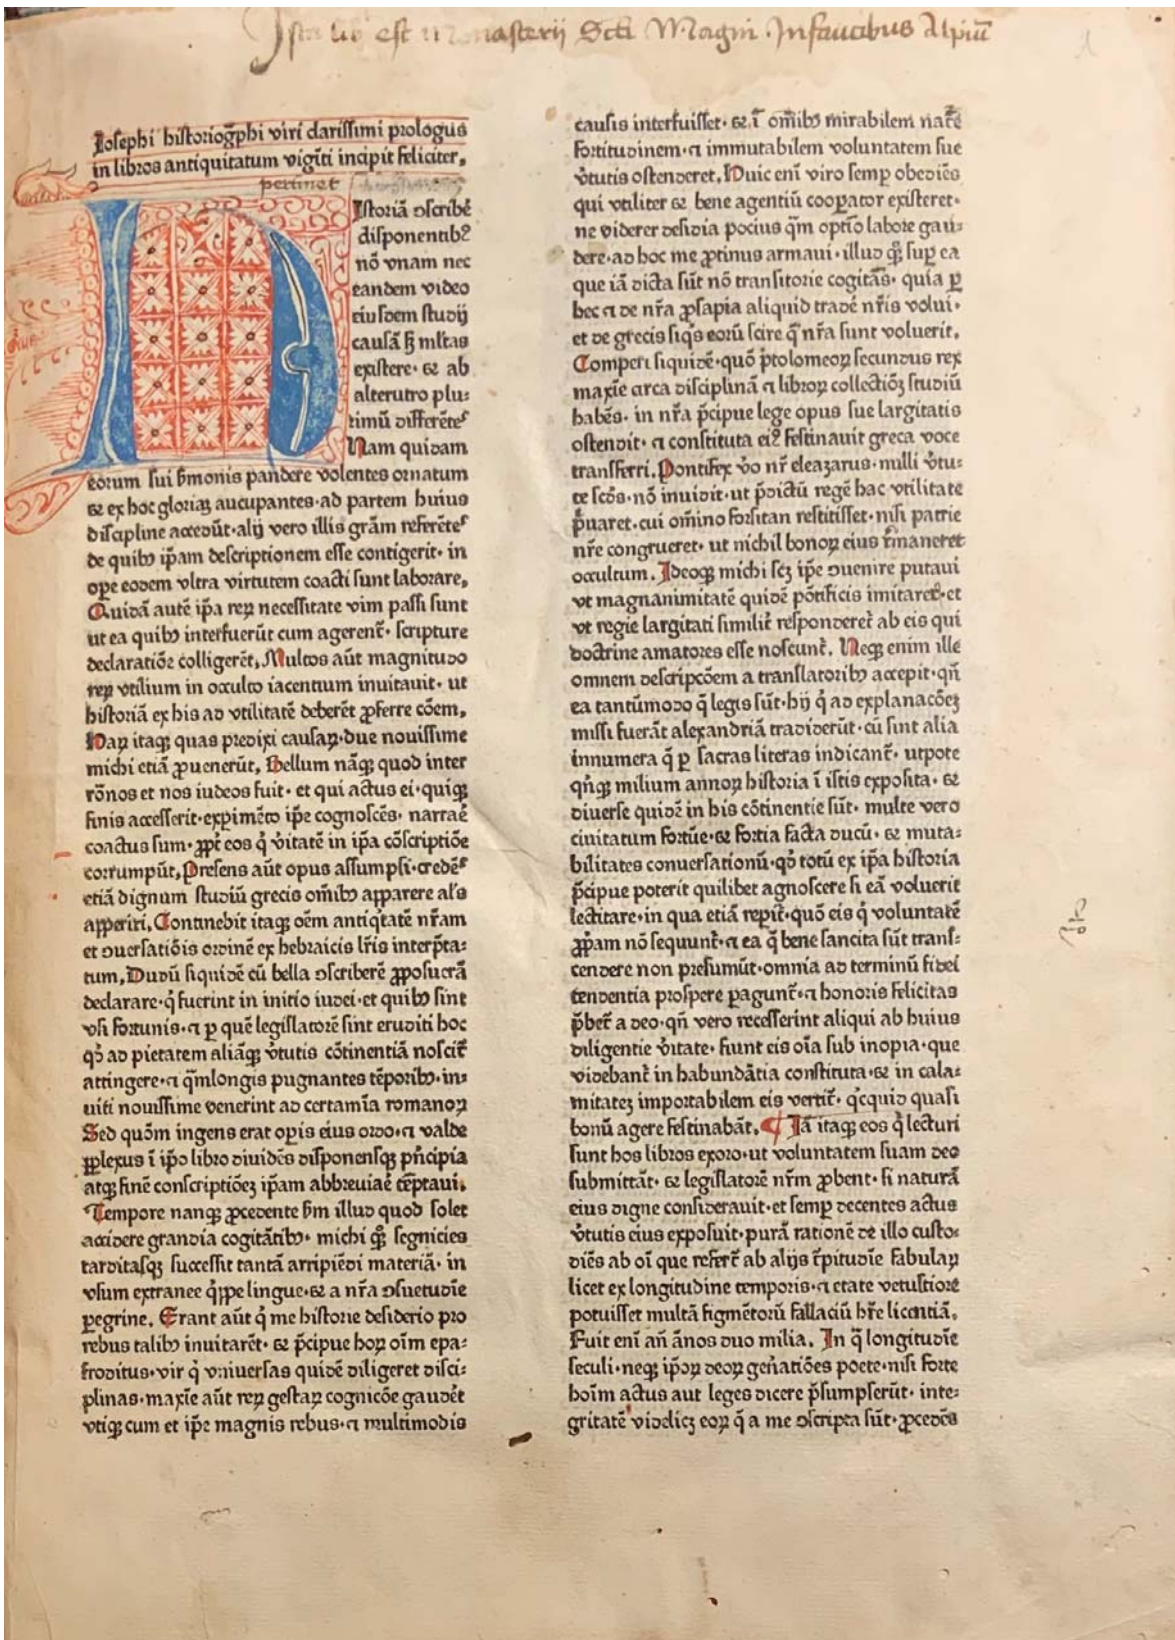 Iste lib est monasterij Scti Magni in faucibus Alpiū
Iosephi historiog̅phi viri clarissimi prologus
in libros antiquitatum vigīti incipit feliciter.
pertinet
Istoriā ɔscribē
disponentibꝰ
nō vnam nec
eandem video
eiusdem studij
causā ſꝫ ml̅tas
existere· ⁊ ab
alterutro plu⸗
timū differētes
Nam quidam
eorum sui ẜmonis pandere volentes ornatum
⁊ ex hoc gloriaꝫ aucupantes· ad partem huius
discipline accedūt· alij vero illis gr̅am referētes
de quibꝰ ip̅am descriptionem esse contigerit· in
oꝑe eodem vltra virtutem coacti sunt laborare.
Quidā autē ip̅a reꝝ necessitate vim passi sunt
ut ea quibꝰ interfuerūt cum agerent̅· scripture
declaratiōe colligerēt. Multos aūt magnitudo
reꝝ vtilium in occulto iacentium inuitauit· ut
historiā ex his ad vtilitatē deberēt ꝓferre cōem.
Haꝝ itaqꝫ quas predixi causaꝝ· due nouissime
michi etiā ꝓuenerūt. Bellum nāqꝫ quod inter
rōnos et nos iudeos fuit· et qui actus ei· quiqꝫ
finis accesserit· expimēto ip̅e cognoscēs· narrare̅
coactus sum· ꝓpt̅ eos q̇ v̓itatē in ip̅a cōscriptiōe
corrumpūt. Presens aūt opus assumpsi· credēs
etiā dignum studiū grecis om̅ibꝰ apparere al̓s
apperiri. Continebit itaqꝫ oēm antiq̇tatē nr̅am
et ɔuersatiōis ordinē ex hebraicis lr̅is interp̅ta⸗
tum. Dudū siquidē cū bella ɔscriberē ꝓposuerā
declarare· q̇ fuerint in initio iudei· et quibꝰ sint
vsi fortunis· ⁊ ꝑ quē legislatorē sint eruditi hoc
qd̓ ad pietatem aliāqꝫ v̓tutis cōtinentiā noscit̅
attingere· ⁊ q̅mlongis pugnantes tēporibꝰ· in⸗
uiti nouissime venerint ad certamīa romanoꝝ
Sed quōm ingens erat oꝑis eius ordo· ⁊ valde
ꝑplexus ī ip̅o libro diuidēs disponensqꝫ pn̅cipia
atqꝫ finē conscriptiōeꝫ ip̅am abbreuiare̅ tēptaui.
Tempore nanqꝫ ꝓcedente ẜm illud quod solet
accidere grandia cogitātibꝰ· michi qꝫ segnicies
tarditasqꝫ successit tantā arripiēdi materiā· in
vsum extranee q̇ppe lingue· ⁊ a nr̅a ɔsuetudīe
ꝑegrine. Erant aūt q̇ me historie desiderio pro
rebus talibꝰ inuitarēt· ⁊ p̅cipue hoꝝ oīm epa⸗
froditus· vir q̇ vniuersas quidē diligeret disci⸗
plinas· maxīe aūt reꝝ gestaꝝ cognicōe gaudēt
vtiqꝫ cum et ip̅e magnis rebus· ⁊ multimodis
causis interfuisset· ⁊ ī om̅ibꝰ mirabilem nat̅e
fortitudinem· ⁊ immutabilem voluntatem sue
v̓tutis ostenderet. Huic eni̅ viro semꝑ obediēs
qui vtiliter ⁊ bene agentiū cooꝑator existeret·
ne viderer desidia pocius q̅m optīo labore gau⸗
dere· ad hoc me ꝓtinus armaui· illud qꝫ suꝑ ea
que iā dicta sūt nō transitorie cogitās· quia ꝑ
hec ⁊ de nr̅a ꝓsapia aliquid tradē nr̅is volui·
et de grecis siq̇s eorū scire q̅ nr̅a sunt voluerit.
Comperi siquidē· quō p̅tolomeoꝝ secundus rex
maxīe circa disciplinā ⁊ libroꝝ collectiōꝫ studiū
habēs· in nr̅a p̅cipue lege opus sue largitatis
ostendit· ⁊ constituta eiꝰ festinauit greca voce
transferri. Pontifex v̓o nr̅ eleazarus· nulli v̓tu⸗
te sc̅ds· nō inuidit· ut p̅dictū regē hac vtilitate
p̅uaret· cui om̅ino forsitan restitisset· nisi patrie
nr̅e congrueret· ut nichil bonoꝝ eius r̅maneret
occultum. Ideoqꝫ michi scꝫ ip̅e ɔuenire putaui
vt magnanimitatē quidē pōtificis imitarer· et
vt regie largitati similit̅ responderet̅ ab eis qui
doctrine amatores esse noscunt̅. Neqꝫ enim ille
omnem descripcōem a translatoribꝰ accepit· qn̅
ea tantūmodo q̅ legis sūt· hij q̇ ad explanacōeꝫ
missi fuerāt alexandriā tradiderūt· cū sint alia
innumera q̅ ꝑ sacras literas indicant̅· utpote
qn̅qꝫ milium annoꝝ historia ī istis exposita· ⁊
diuerse quidē in his cōtinentie sūt· multe vero
ciuitatum fortūe· ⁊ fortia facta ducū· ⁊ muta⸗
bilitates conuersationū· qd̓ totū ex ip̅a historia
p̅cipue poterit quilibet agnoscere si eā voluerit
lectitare· in qua etiā reꝑit̅· quō eis q̇ voluntatē
ꝓpam nō sequunt̅· ⁊ ea q̅ bene sancita sūt trans⸗
cendere non presumūt· omnia ad terminū fidei
tendentia prospere ꝑagunt̅· ⁊ honoris felicitas
p̅bet̅ a deo· qn̅ vero recesserint aliqui ab huius
diligentie v̓itate· fiunt eis oīa sub inopia· que
videbant̅ in habundātia constituta· ⁊ in cala⸗
mitateꝫ importabilem eis vertit̅· q̇cquid quasi
bonū agere festinabāt. ¶ Iā itaqꝫ eos q̇ lecturi
sunt hos libros exoro· ut voluntatem suam deo
submittāt· ⁊ legislatorē nr̅m ꝓbent· si naturā
eius digne considerauit· et semꝑ decentes actus
v̓tutis eius exposuit· purā rationē de illo custo⸗
diēs ab oī que refert̅ ab alijs t̅pitudīe fabulaꝝ
licet ex longitudine temporis· ⁊ etate vetustiorē
potuisset multā figmētorū fallaciū hr̅e licentiā.
Fuit eni̅ an̅ ānos duo milia. In q̅ longitudīe
seculi· neqꝫ ip̅oꝝ deoꝝ gen̅atiōes poete· nisi forte
hoīm actus aut leges dicere p̅sumpserūt· inte⸗
gritatē videlicꝫ eoꝝ q̅ a me ɔscripta sūt· ꝓcedēs